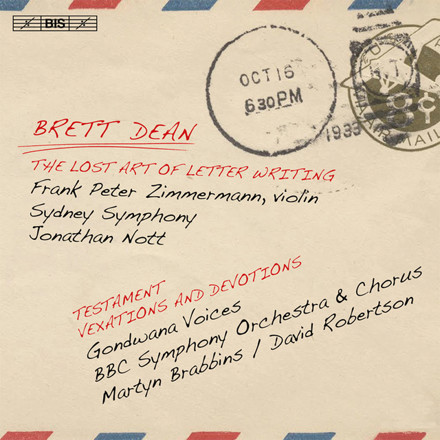 BIS
OCT 16
6 30 PM
1935
BRETT DEAN
THE LOST ART OF LETTER WRITING
Frank Peter Zimmermann, violin
Sydney Symphony
Jonathan Nott
TESTAMENT
VEXATIONS AND DEVOTIONS
Gondwana Voices
BBC Symphony Orchestra & Chorus
Martyn Brabbins / David Robertson